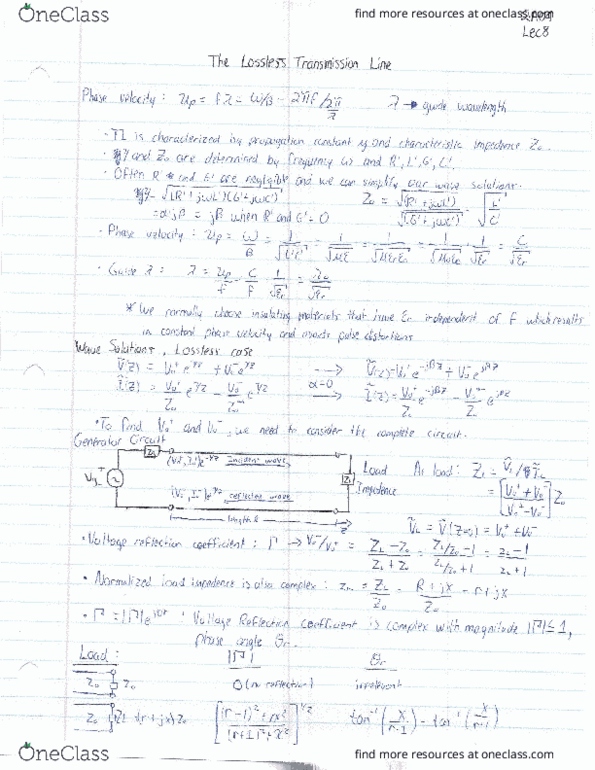 OneClass
find more resources at oneclass.com
Lec8
The Lossless Transmission Line
Phase velocity: Up = fλ = ω/β = 2πf / 2π/λ   λ → guide wavelength
• TL is characterized by propagation constant γ and characteristic impedance Zo.
• γ and Zo are determined by frequency ω and R', L', G', C'.
• Often R' and G' are negligible and we can simplify our wave solutions.
γ = √(R'+jωL')(G'+jωC')   Zo = √(R'+jωL') / √(G'+jωC')   √L'/C'
= α+jβ = jβ when R' and G' = 0
• Phase velocity: Up = ω/β = 1/√L'C' = 1/√με = 1/√μεrεo = 1/√μoεo · 1/√εr = C/√εr
• Guide λ: λ = Up/f = C/f · 1/√εr = λo/√εr
* We normally choose insulating materials that have εr independent of f which results
in constant phase velocity and avoids pulse distortions
Wave Solutions, Lossless case
Ṽ(z) = Vo⁺e^-γz + Vo⁻e^γz   --->   Ṽ(z) = Vo⁺e^-jβz + Vo⁻e^jβz
Ĩ(z) = Vo⁺/Zo e^-γz - Vo⁻/Zo e^γz   α=0 →   Ĩ(z) = Vo⁺/Zo e^-jβz - Vo⁻/Zo e^jβz
• To find Vo⁺ and Vo⁻, we need to consider the complete circuit.
Generator Circuit
Incident wave
Load Impedance
At load: ZL = ṼL/ĨL
= [Vo⁺+Vo⁻ / Vo⁺-Vo⁻] Zo
reflected wave
length l
z
ṼL = Ṽ(z=0) = Vo⁺ + Vo⁻
• Voltage reflection coefficient: Γ → Vo⁻/Vo⁺ = ZL-Zo / ZL+Zo = ZL/Zo-1 / ZL/Zo+1 = zL-1 / zL+1
• Normalized load impedence is also complex: = ZL/Zo = R+jX / Zo = r+jx
• Γ = |Γ|e^jθr : Voltage Reflection Coefficient is complex with magnitude |Γ| ≤ 1,
phase angle θr.
Load:   |Γ|   θr
Zo   Zo   0 (no reflection)   irrelevent
Zo   ZL (r+jx)Zo   [(r-1)²+x² / (r+1)²+x²]^1/2   tan⁻¹(x/r-1) - tan⁻¹(x/r+1)
OneClass
find more resources at oneclass.com